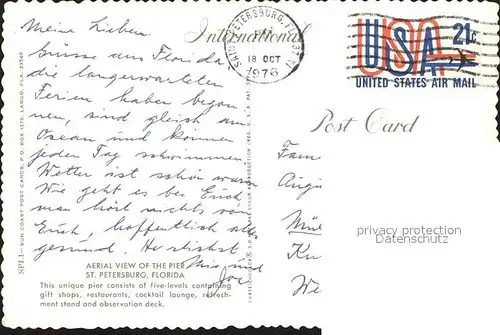 Meine Lieben
Grüsse aus Florida,
die langerwarteten
Ferien haben begon-
nen, sind gleich am
Ozean und können
jeden Tag schwimmen
Wetter ist schön warm
Wie geht es bei Euch
man hört nichts von
Euch, hoffentlich alle
gesund. Herzlichst
und
Joe
AERIAL VIEW OF THE PIER
ST. PETERSBURG, FLORIDA
This unique pier consists of five-levels containing
gift shops, restaurants, cocktail lounge, refresh-
ment stand and observation deck.
SUN COAST POST CARDS, P.O. BOX 1570, LARGO, FLA. 33540
International
Post Card
SAINT PETERSBURG, FL
18 OCT
1976
USA 21c
UNITED STATES AIR MAIL
Fam
privacy protection
Vorschaubild
We